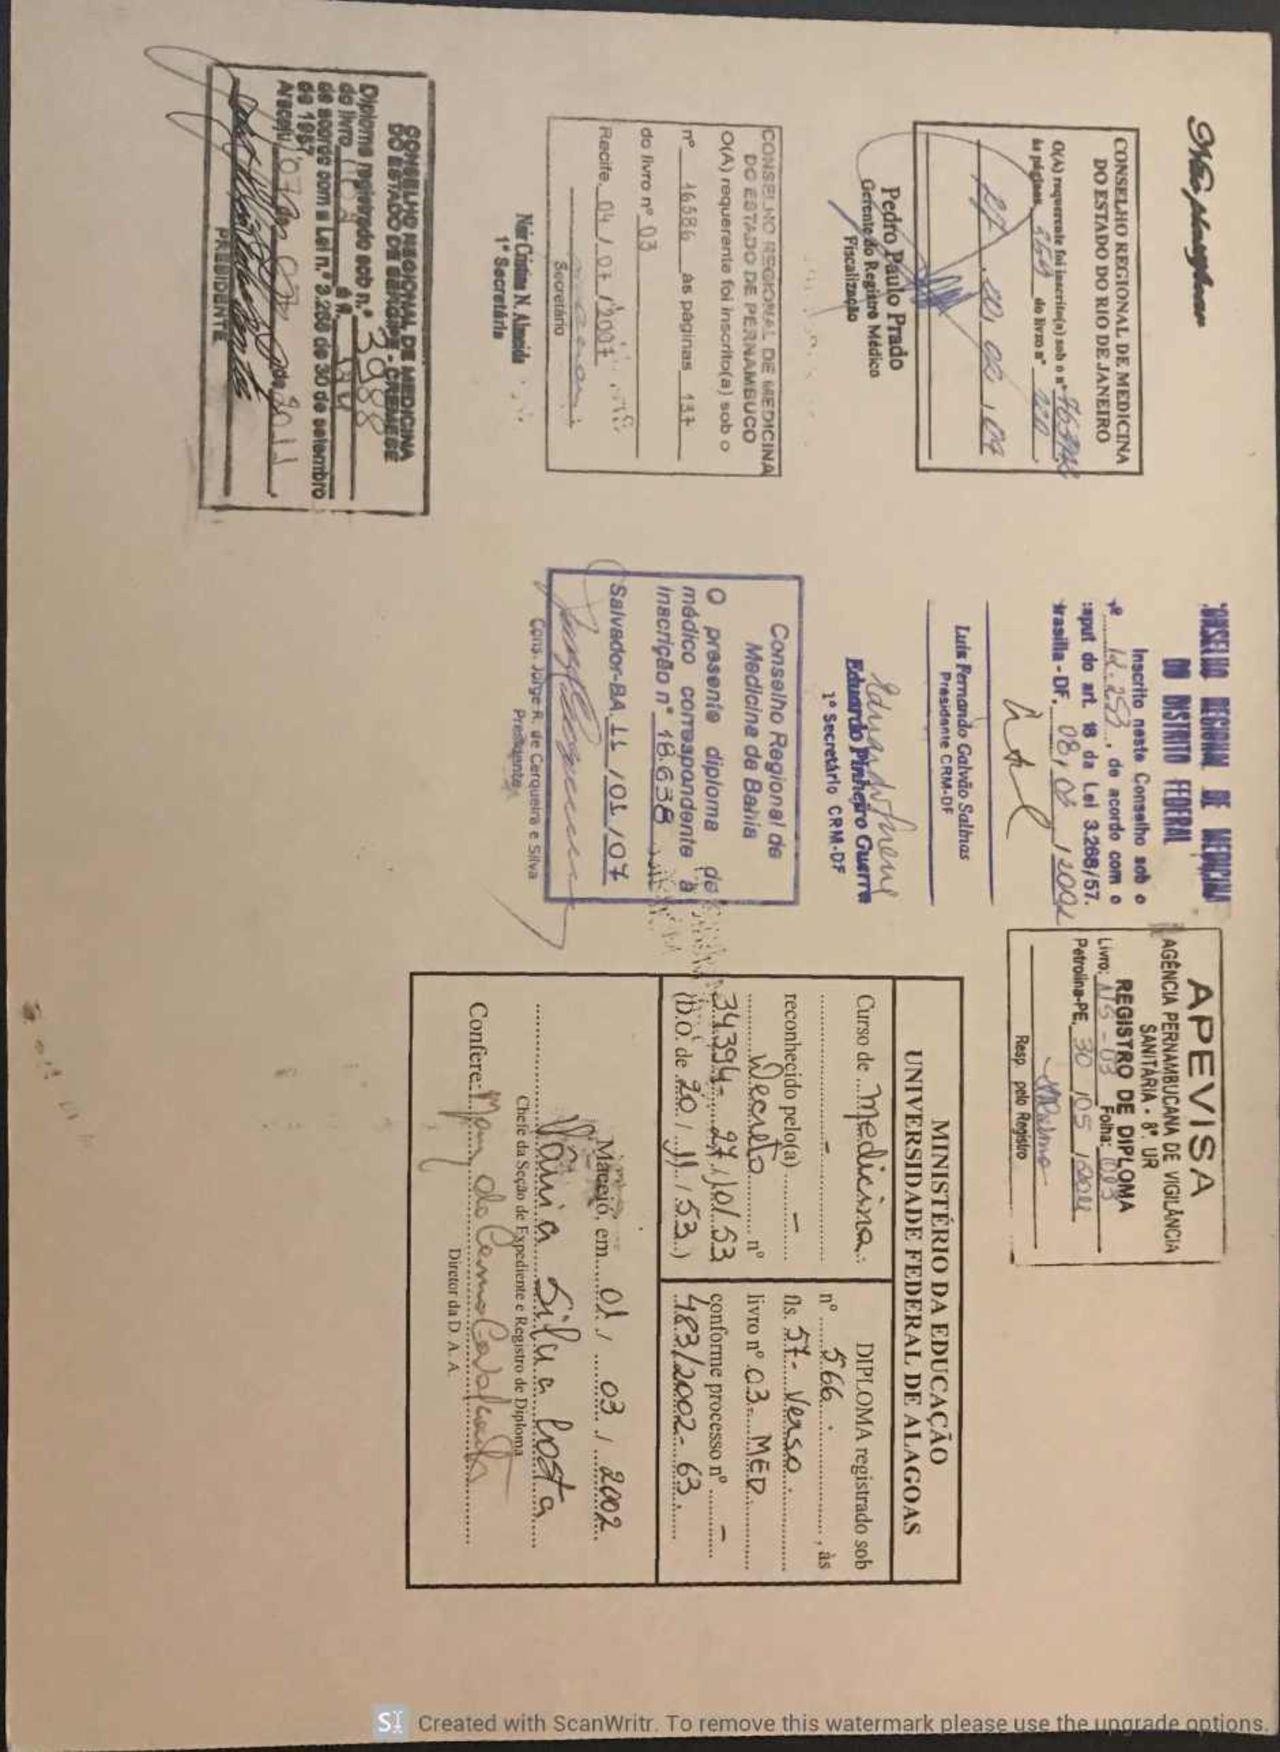 Não plastifique
CONSELHO REGIONAL DE MEDICINA
DO ESTADO DO RIO DE JANEIRO
O(A) requerente foi inscrito(a) sob o nº
às páginas, do livro nº 220
Pedro Paulo Prado
Gerente do Registro Médico
Fiscalização
CONSELHO REGIONAL DE MEDICINA
DO ESTADO DE PERNAMBUCO
O(A) requerente foi inscrito(a) sob o
nº 16586 às páginas 137
do livro nº 03
Recife 04 / 07 / 2007
Secretário
Nair Cristina N. Almeida
1ª Secretária
CONSELHO REGIONAL DE MEDICINA
DO ESTADO DE SERGIPE - CREMESE
Diploma registrado sob n.º 3988
do livro
de acordo com a Lei n.º 3.268 de 30 de setembro
de 1957
Aracaju, 07 de de 2011
PRESIDENTE
CONSELHO REGIONAL DE MEDICINA
DO DISTRITO FEDERAL
Inscrito neste Conselho sob o
nº , de acordo com o
caput do art. 18 da Lei 3.268/57.
Brasília - DF,
Luis Fernando Galvão Salinas
Presidente CRM-DF
Eduardo Pinheiro Guerra
1º Secretário CRM-DF
Conselho Regional de
Medicina da Bahia
O presente diploma de
médico correspondente à
inscrição nº 18.638
Salvador-BA 11 / 01 / 07
Cons. Jorge R. de Cerqueira e Silva
Presidente
APEVISA
AGÊNCIA PERNAMBUCANA DE VIGILÂNCIA
SANITÁRIA - 8ª. UR
REGISTRO DE DIPLOMA
Livro: Folha:
Petrolina-PE, 30 / 05 /
Resp. pelo Registro
MINISTÉRIO DA EDUCAÇÃO
UNIVERSIDADE FEDERAL DE ALAGOAS
Curso de Medicina
reconhecido pelo(a) -
Decreto nº
34394- 27/10/53
(D.O. de 20 / 11 / 53.)
DIPLOMA registrado sob
nº 566 , às
fls. 57- Verso
livro nº 03- MED
conforme processo nº -
483/2002-63
Maceió, em 01 / 03 / 2002
Vânia Silva Costa
Chefe da Seção de Expediente e Registro de Diploma
Confere: Mary do Carmo Cavalcante
Diretor da D. A. A.
Created with ScanWritr. To remove this watermark please use the upgrade options.